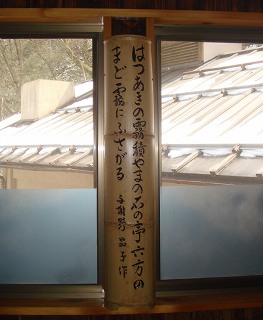 はつあきの霧積やまの石の亭六方の
まど霧にふさがる
与謝野 晶子 作